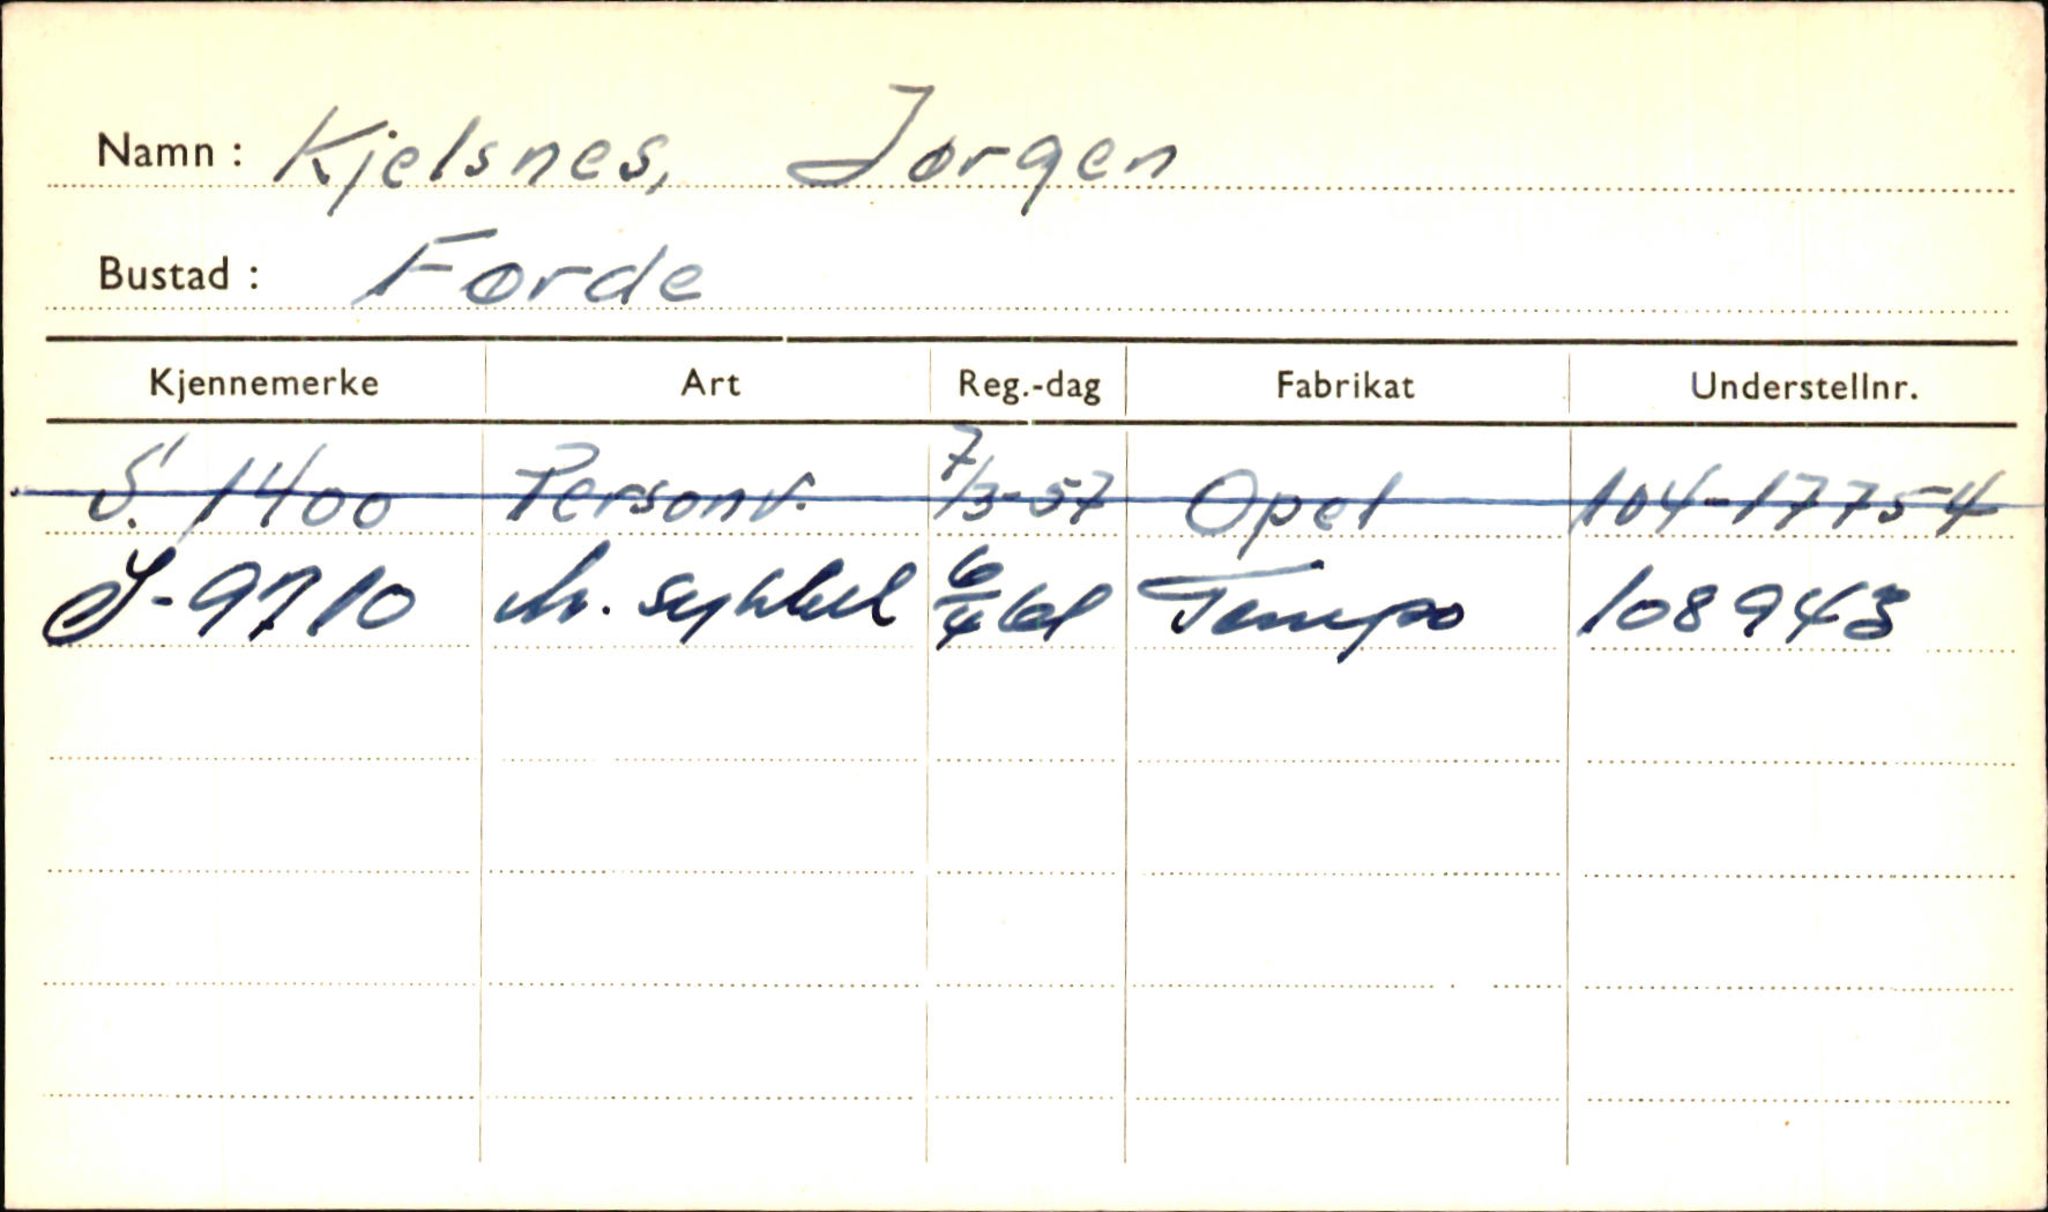 Namn : Kjelsnes, Jørgen
Bustad : Førde
Kjennemerke Art Reg.-dag Fabrikat Understellnr.
S. 1400 Personv. 7/3-57 Opel 104-17754
S-9710 M. sykkel 6/4 61 Tempo 108943